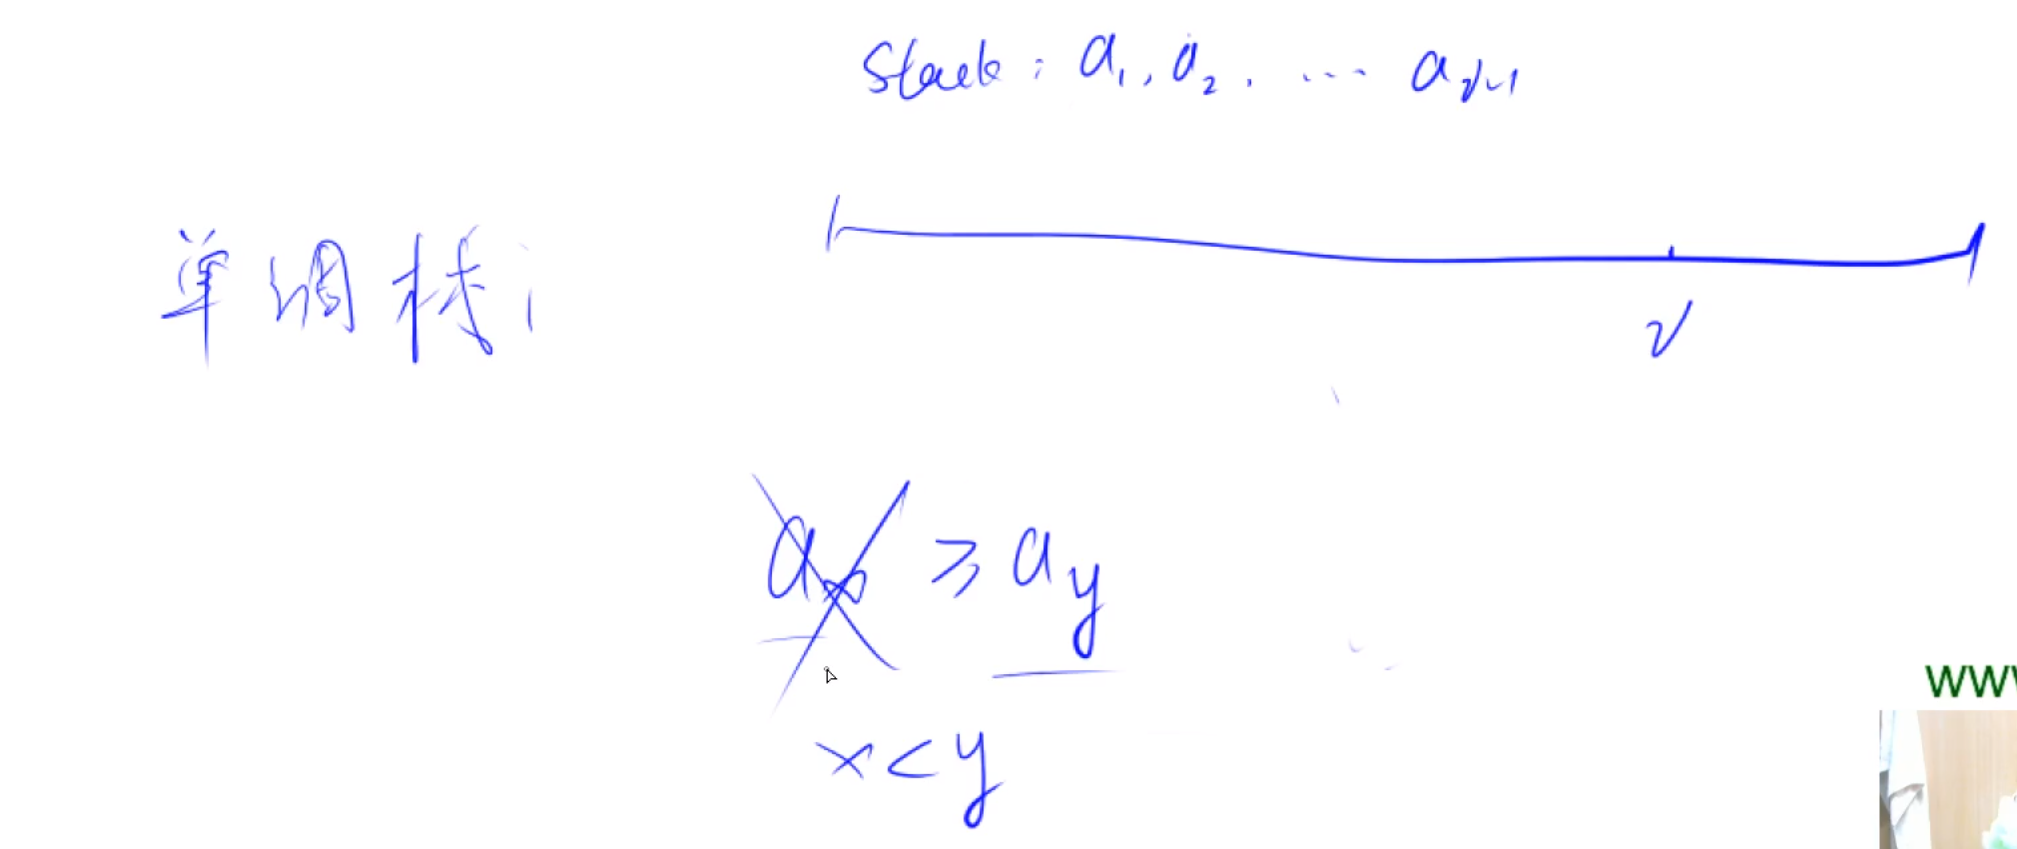 Stack: a₁, a₂, ... aᵢ₋₁
单调栈:
i
aₓ ≥ a_y
x < y
www